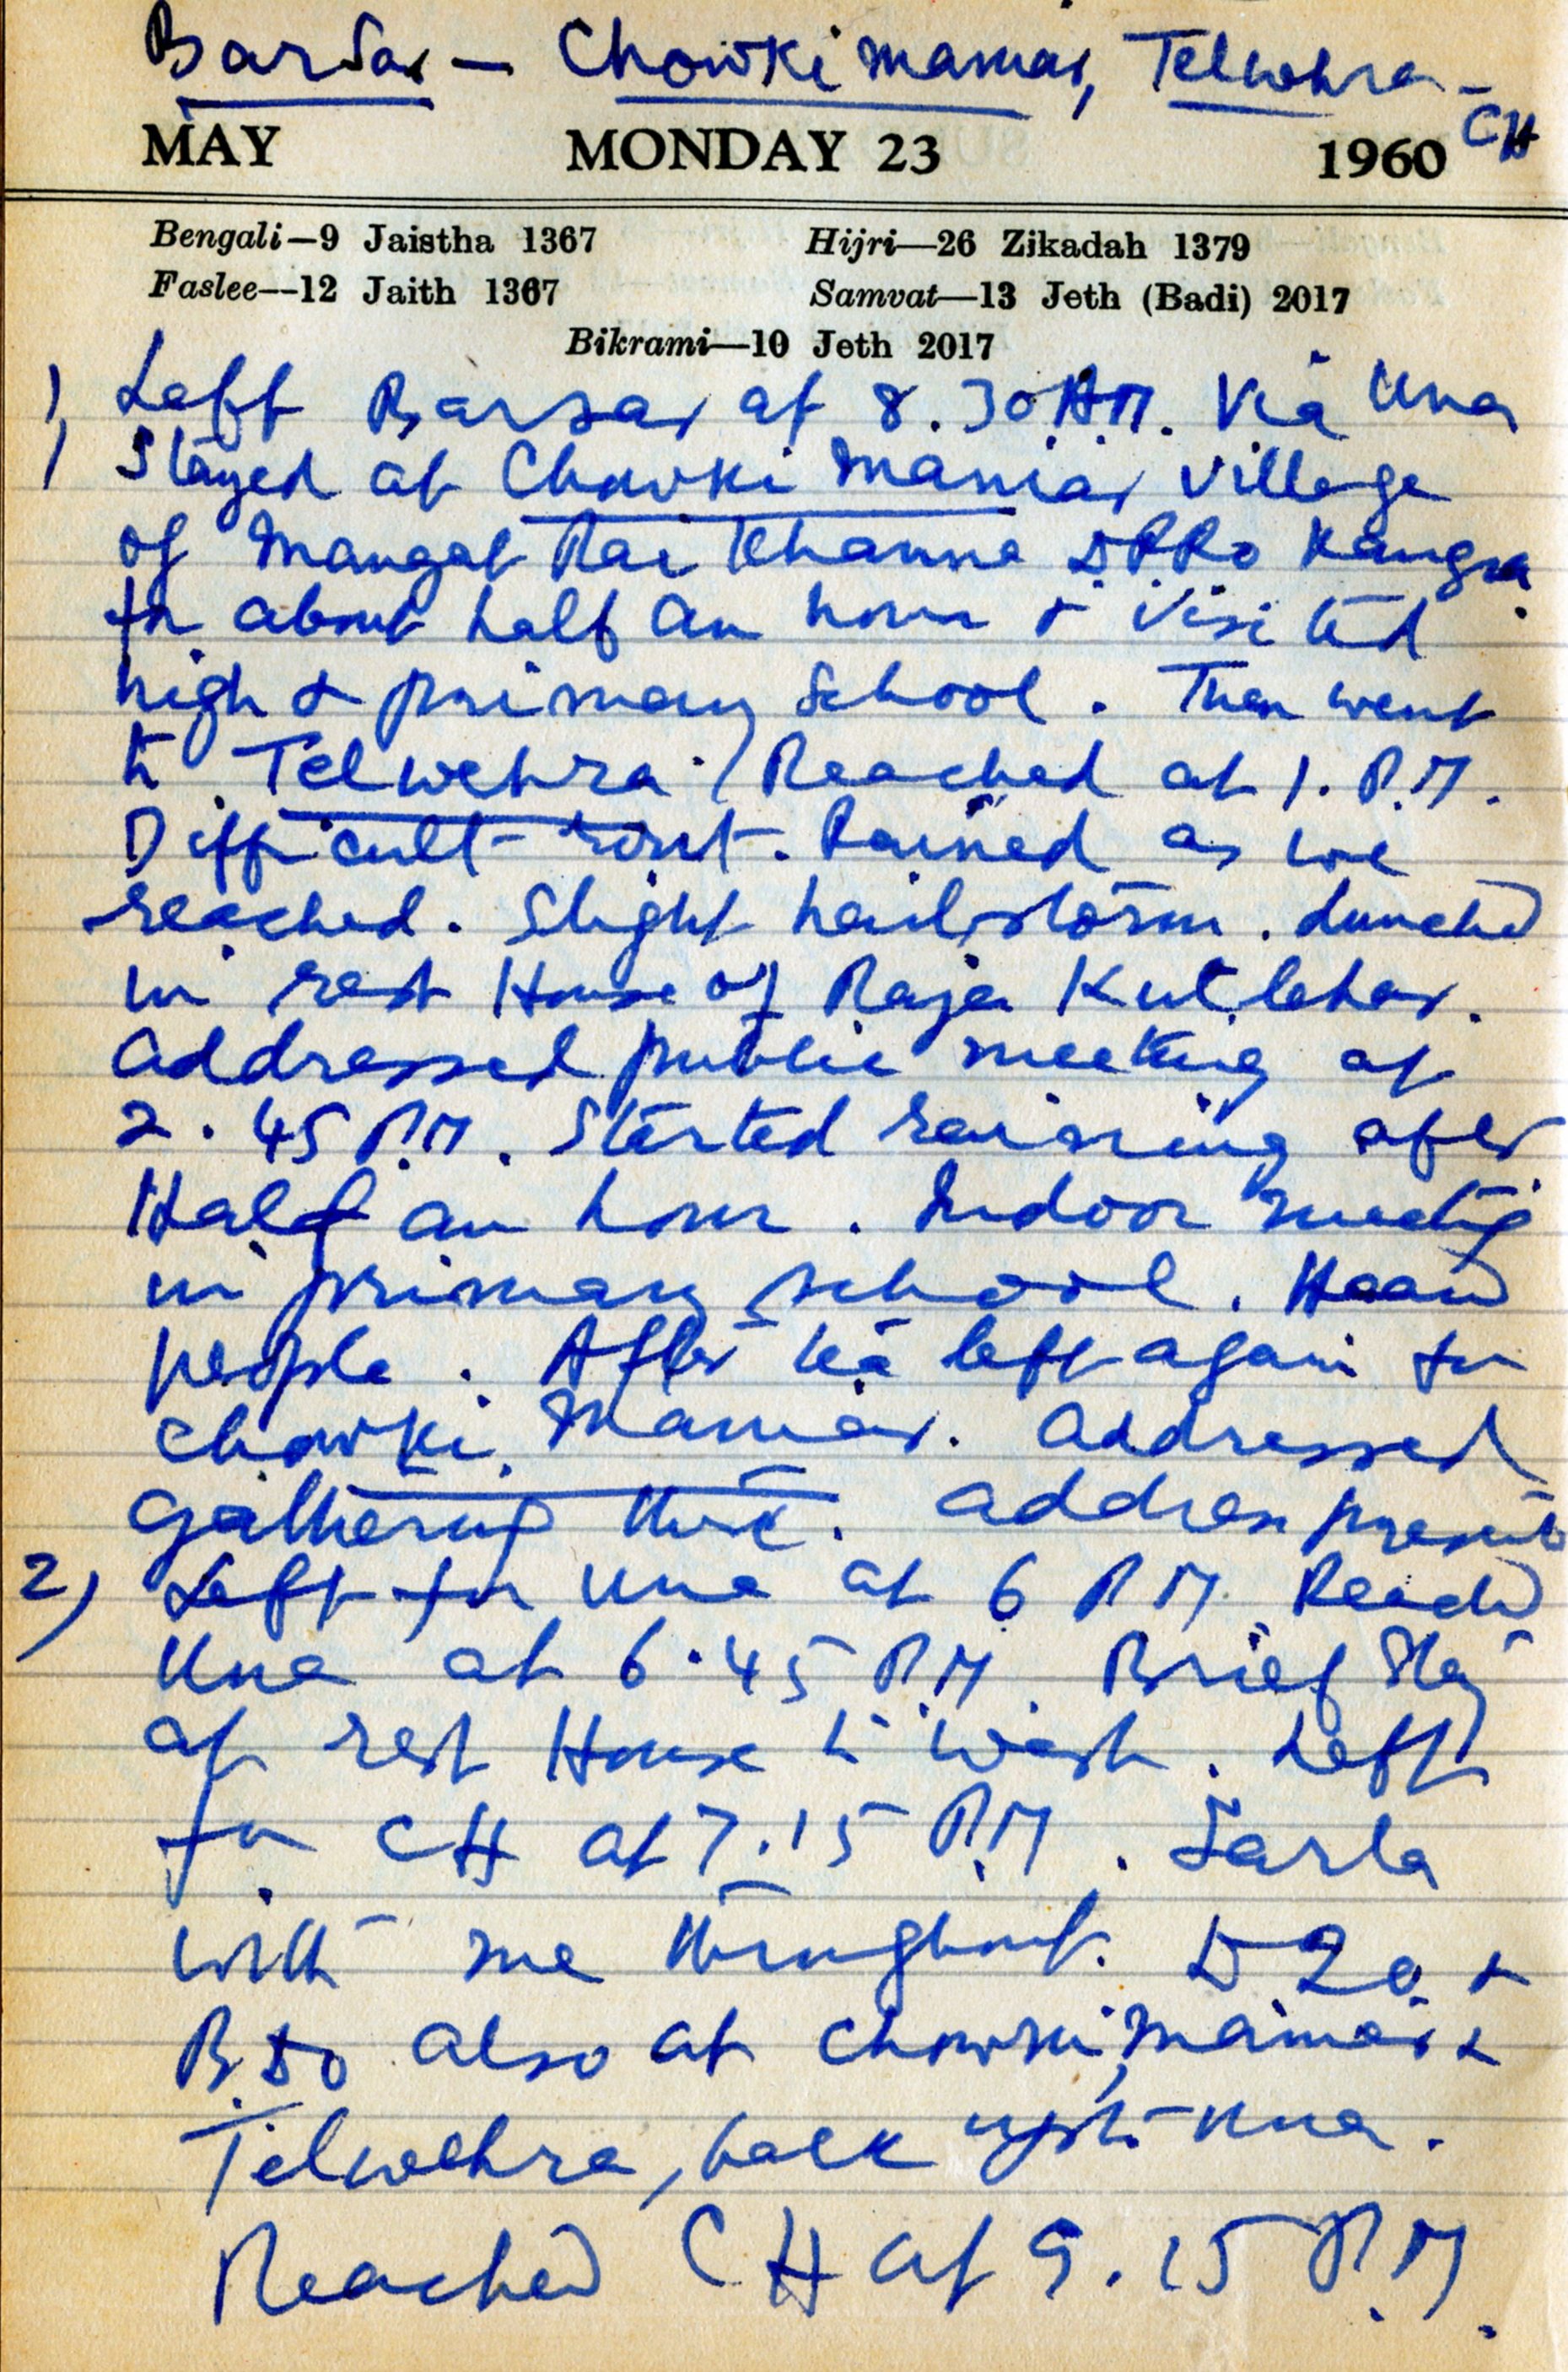 Barsar — Chowki Maniar, Telwehra -
CH
MAY MONDAY 23 1960
Bengali—9 Jaistha 1367 Hijri—26 Zikadah 1379
Faslee—12 Jaith 1367 Samvat—13 Jeth (Badi) 2017
Bikrami—10 Jeth 2017
1) Left Barsar at 8.30 AM. Via Una
Stayed at Chowki Maniar village
of Mangat Rai Khanna DPRO Kangra
for about half an hour & visited
high & primary school. Then went
to Telwehra. Reached at 1. P.M.
Difficult rout. Rained as we
reached. Slight hailstorm. Lunched
in rest House of Raja Kutlehar.
Addressed public meeting at
2.45 P.M. Started raining after
Half an hour. Indoor meeting
in primary school. Heard
people. After tea left again for
Chowki Maniar. Addressed
gathering there. Address present
2) Left for Una at 6 PM. Reached
Una at 6.45 P.M. Brief stay
at rest House to wash. Left
for CH at 7.15 P.M. Sarla
with me throughout. D &
BDO also at Chowki Maniar &
Telwehra, back upto Una.
Reached CH at 9.15 P.M.